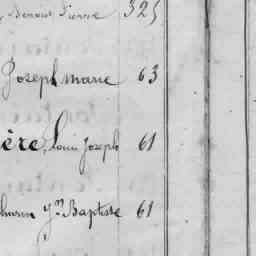 Benoit Pierre 325
Joseph marie 63
ère, Louis Joseph 61
Jn Baptiste 61